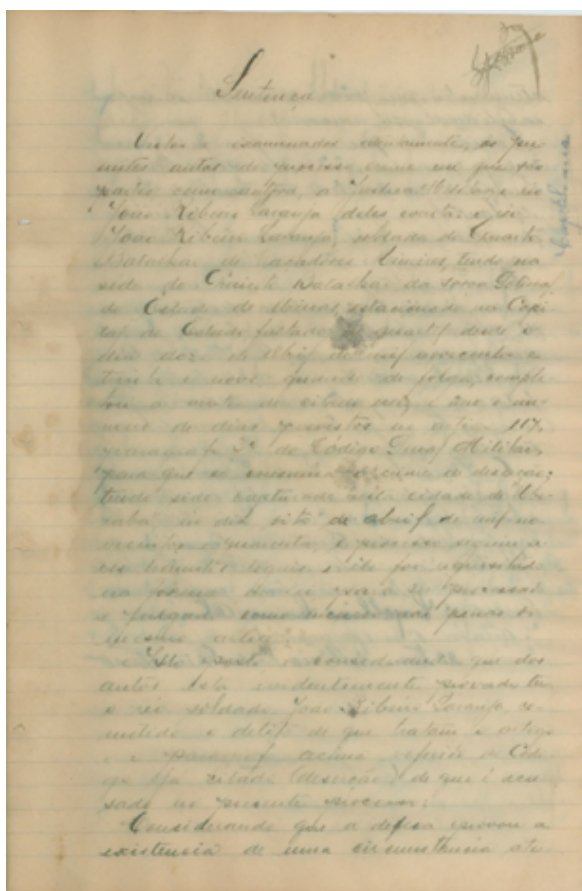 Sentença
Vistos e examinados os pre-
sentes autos de processo crime em que são
partes como autora, a Justiça Militar e réo
João Ribeiro Laranja
João Ribeiro Laranja, soldado do Quarto
Batalhão de Caçadores Mineiros, tendo na
sede do Quinto Batalhão da Força Pública
do Estado de Minas, estacionado na Capi-
tal do Estado faltado ao quartel desde o
dia doze de Abril de mil novecentos e
trinta e nove, quando de folga, comple-
tou a vinte do citado mez e anno o nu-
mero de dias previstos no artigo 117,
paragrafo 3º do Código Penal Militar,
para que se consuma o crime de deserção;
tendo sido capturado na cidade de Ube-
raba no dia oito de abril de mil no-
vecentos e quarenta, e processo seguiu
para ser processado
e julgado como incurso nas penas do
mesmo artigo;
Isto posto e considerando que dos
autos está evidentemente provado ter
o réo soldado João Ribeiro Laranja co-
metido o delito de que tratam o artigo
e o paragrafo acima do Codi-
go já citado (deserção) de que é acu-
sado no presente processo;
Considerando que a defesa provou a
existencia de uma circumstancia ate-